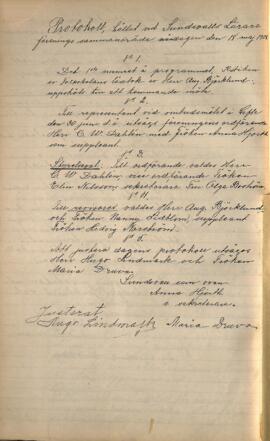 Protokoll, hållet vid Sundsvalls Lärare
förenings sammanträde söndagen den 18 maj
§ 1.
Det 1sta numret å programmet Kritiken
av Herr Aug. Björklund,
uppsköts till ett kommande möte.
§ 2.
Till representant vid ombudsmötet i Gefle
den 20 juni d. å. utsågs föreningens ordförande
Herr C. W. Dahlén med fröken Anna Hjorth
som suppleant.
§ 3.
Styrelseval. Till ordförande valdes Herr
C. W. Dahlén, vice ordförande fröken
Elin Nilsson, sekreterare Frn Olga Broström
§ 4.
Till revisorer valdes Herr Aug. Björklund
och fröken Nanny Sidblom, suppleant
fröken Hedvig Nordström.
§ 5.
Att justera dagens protokoll utsågos
Herr Hugo Lindmark och Fröken
Maria Druva.
Sundsvall som ovan
Anna Hjorth
v. sekreterare.
Justerat
Hugo Lindmark Maria Druva.